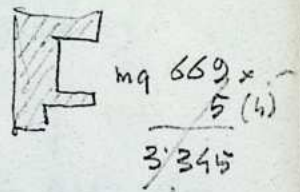 mq 669 x
5 (4)
3'345